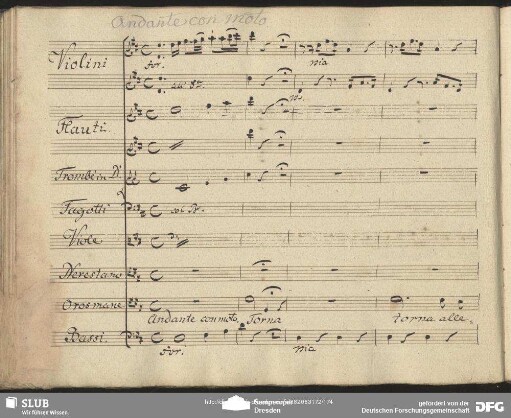 Andante con moto
Violini
for.
pia
col Pmo.
Flauti.
Trombe in D.
Fagotti
col B.
Viole
Nerestano
Orosmane
Andante con moto. Torna
torna alle
Bassi.
for.
pia
SLUB
Wir führen Wissen.
Dresden
gefördert von der
Deutschen Forschungsgemeinschaft
DFG